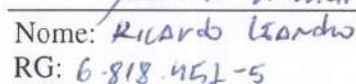 Nome: Ricardo Leandro
RG: 6.818.451-5